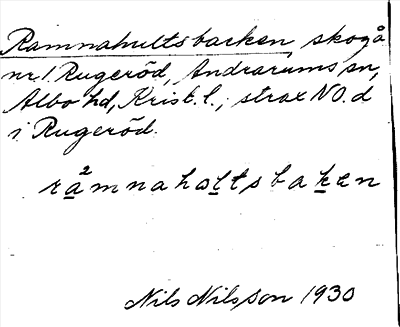 Ramnahultsbacken, skogå
nr 1 Rugeröd, Andrarums sn,
Albo hd, Krist. l.; strax NO. d
i Rugeröd.
rå²mnahultsbaken
Nils Nilsson 1930